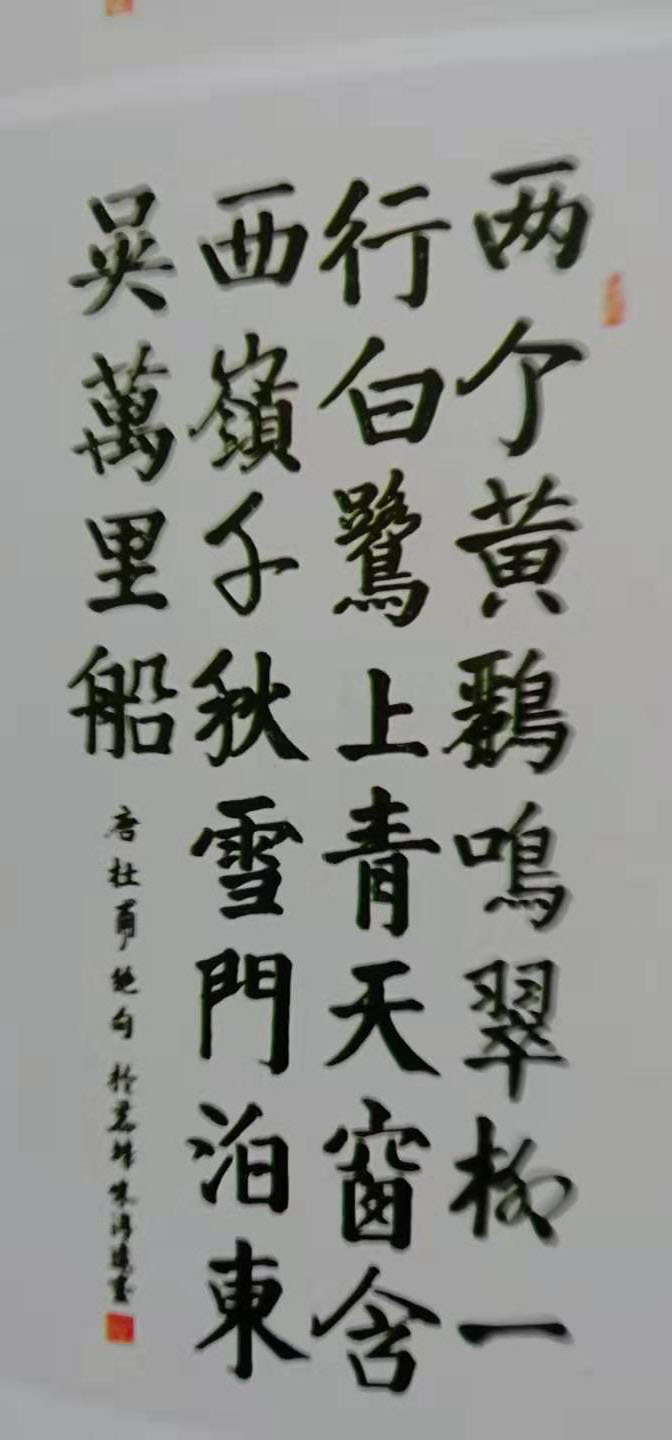 两个黄鸝鳴翠柳一
行白鷺上青天窗含
西嶺千秋雪門泊東
吳萬里船
唐杜甫絶句於